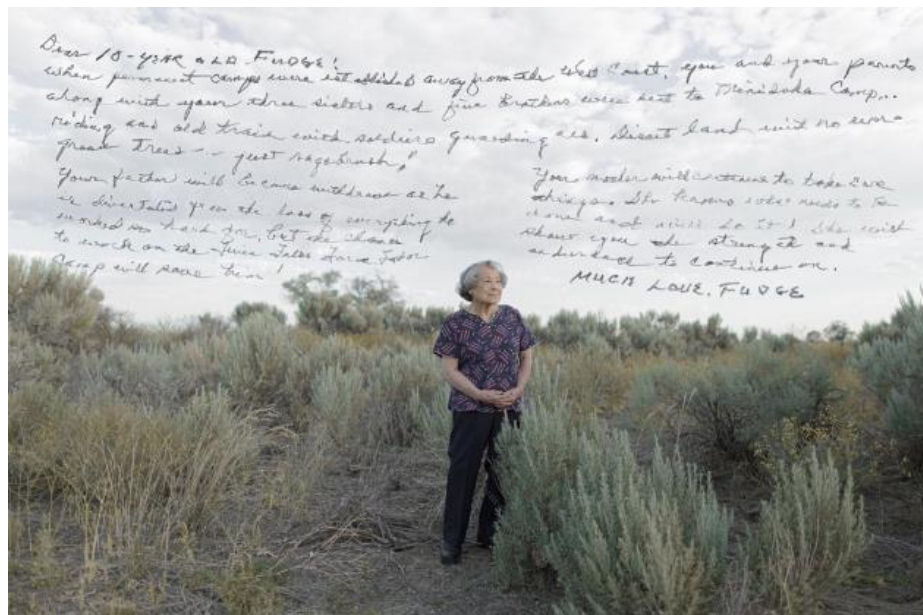 Dear 10-year old Fudge!
when permanent camps were established away from the West Coast, you and your parents
along with your three sisters and five brothers were sent to Minidoka Camp...
riding an old train with soldiers guarding us. Desert land with no
green trees -- just sagebrush!
Your father will become withdrawn as he
is devastated from the loss of everything he
worked so hard for, but the chance
to work on the Twin Falls Farm Labor
Camp will save him!
Your mother will continue to take care
things. She knows what needs to be
done and will do it! She will
show you the strength and
endurance to continue on.
Much Love, Fudge